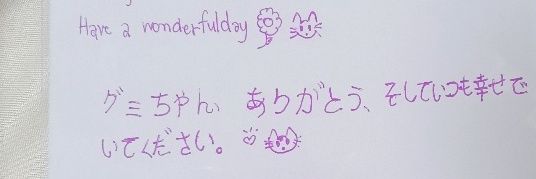 Have a wonderfulday
グミちゃん、ありがとう、そしていつも幸せで
いてください。